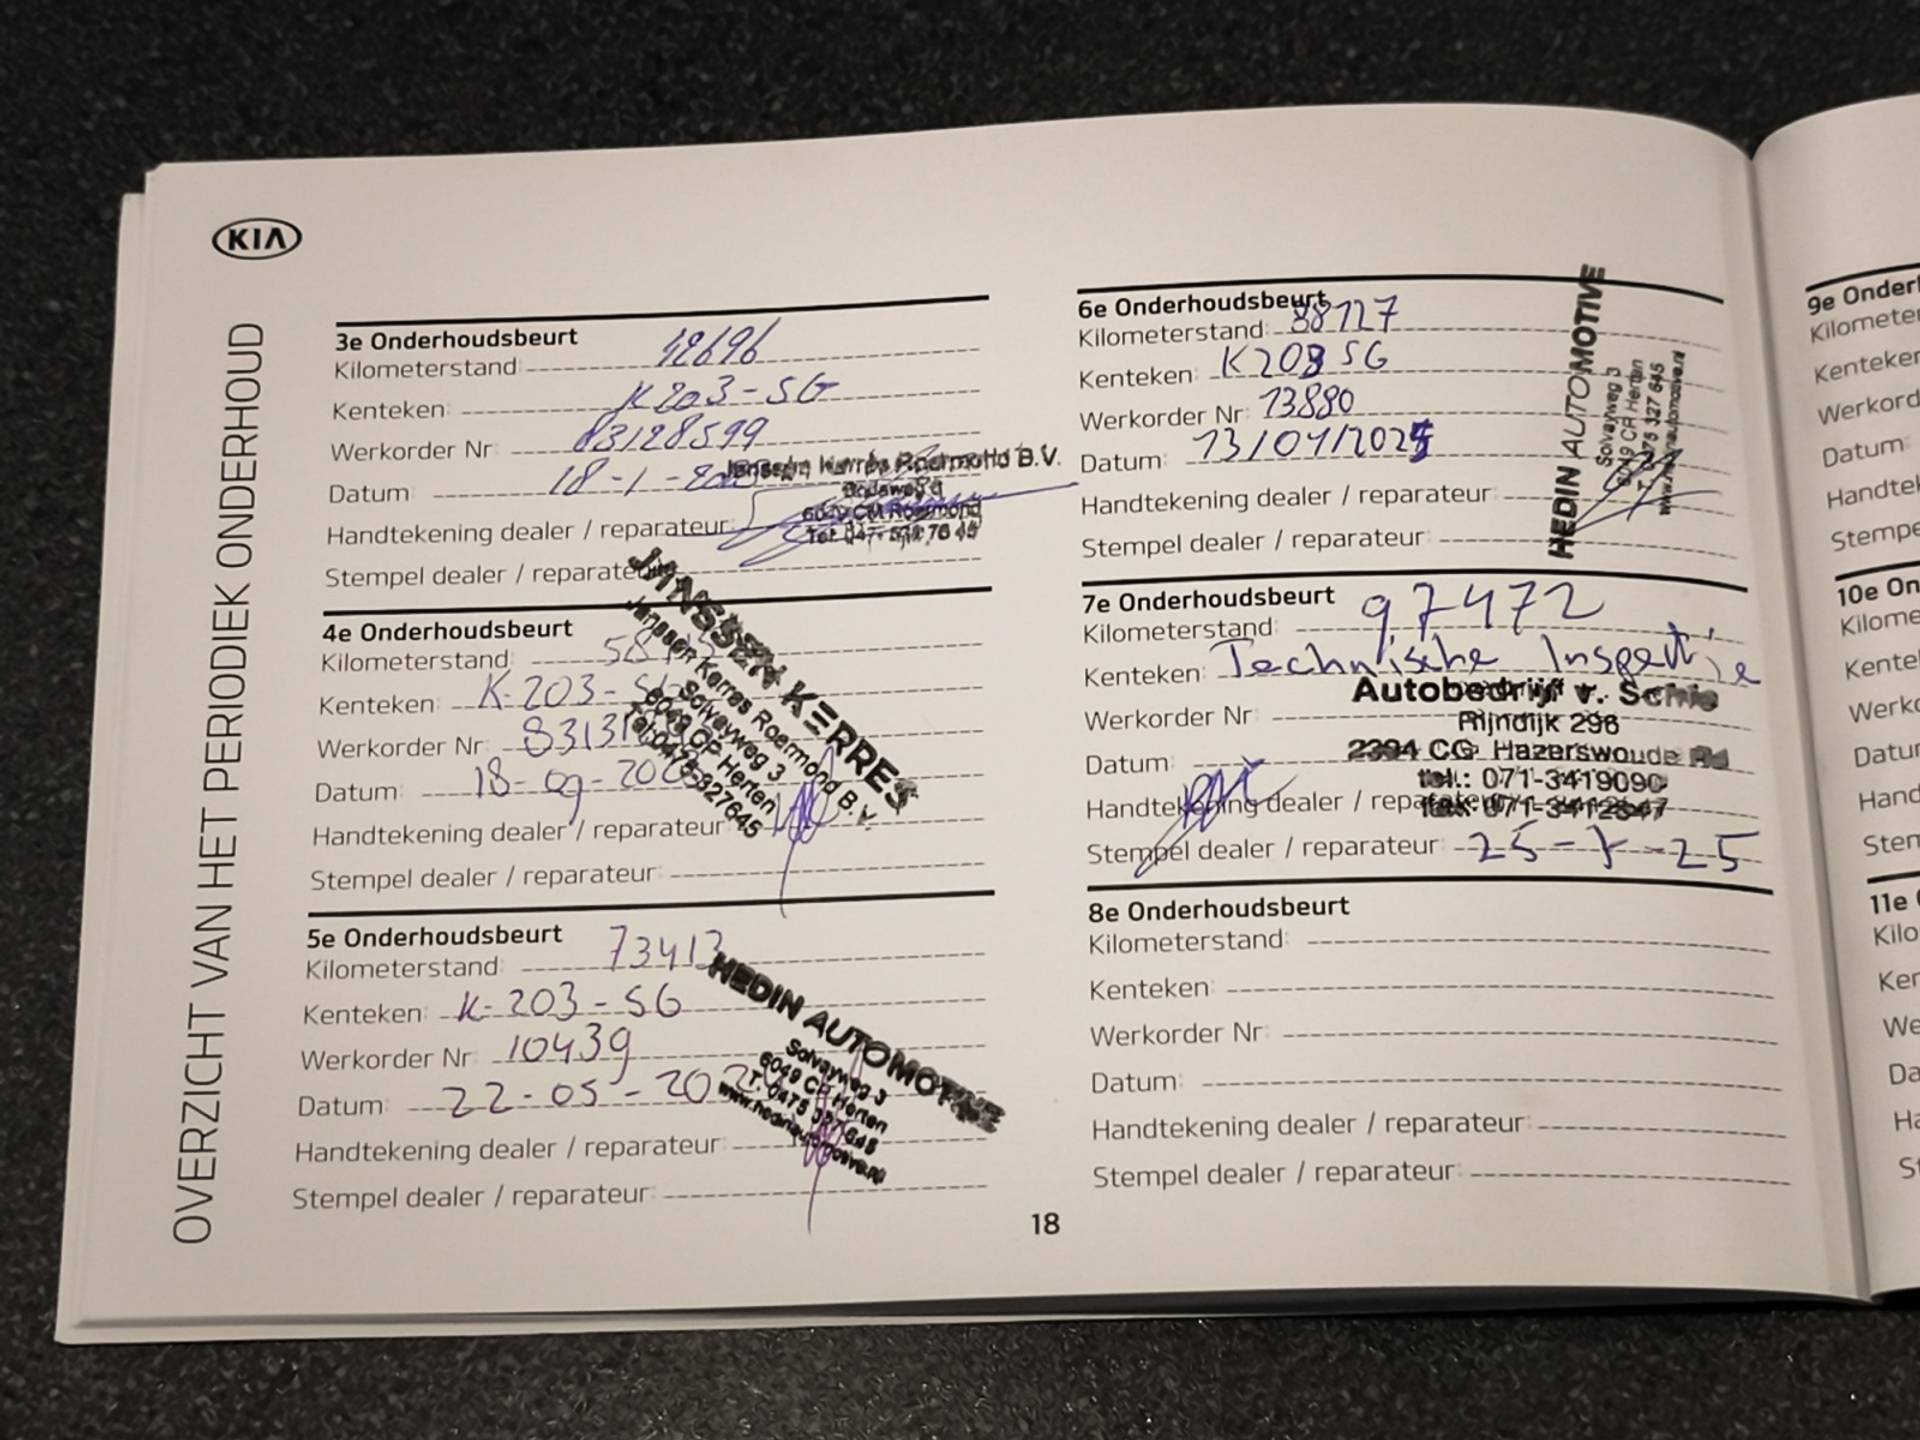 KIA
OVERZICHT VAN HET PERIODIEK ONDERHOUD
3e Onderhoudsbeurt
Kilometerstand
Kenteken: K203-SG
Werkorder Nr 83128599
Datum: 18-1-
Handtekening dealer / reparateur:
Stempel dealer / reparateur
Janssen Kerres Roermond B.V.
6049 CM Roermond
4e Onderhoudsbeurt
Kilometerstand
Kenteken: K-203-
Werkorder Nr:
Datum: 18-09-
Handtekening dealer / reparateur:
Stempel dealer / reparateur:
JANSSEN KERRES
Janssen Kerres Roermond B.V.
Solvayweg 3
6049 CP Herten
Tel:0475-327645
5e Onderhoudsbeurt
Kilometerstand: 73413
Kenteken: K-203-SG
Werkorder Nr: 10439
Datum: 22-05-20
Handtekening dealer / reparateur:
Stempel dealer / reparateur:
HEDIN AUTOMOTIVE
Solvayweg 3
6049 CP Herten
T. 0475 327 645
www.hedinautomotive.nl
6e Onderhoudsbeurt
Kilometerstand: 88127
Kenteken: K203 SG
Werkorder Nr: 13880
Datum:
Handtekening dealer / reparateur:
Stempel dealer / reparateur:
HEDIN AUTOMOTIVE
Solvayweg 3
6049 CP Herten
T. 0475 327 645
www.hedinautomotive.nl
7e Onderhoudsbeurt
Kilometerstand: 97472
Kenteken: Technische Inspectie
Werkorder Nr:
Datum:
Handtekening dealer / reparateur:
Stempel dealer / reparateur: 25-7-25
Autobedrijf v. Schie
Rijndijk 296
2394 CG Hazerswoude Rd
tel.: 071-3419090
fax: 071-3412347
8e Onderhoudsbeurt
Kilometerstand:
Kenteken:
Werkorder Nr:
Datum:
Handtekening dealer / reparateur:
Stempel dealer / reparateur:
18
9e Onder
Kilometer
Kenteken
Werkord
Datum:
Handtek
Stempe
10e On
Kilome
Kente
Werko
Datu
Hand
Sten
11e
Kilo
Ker
We
Da
Ha
St